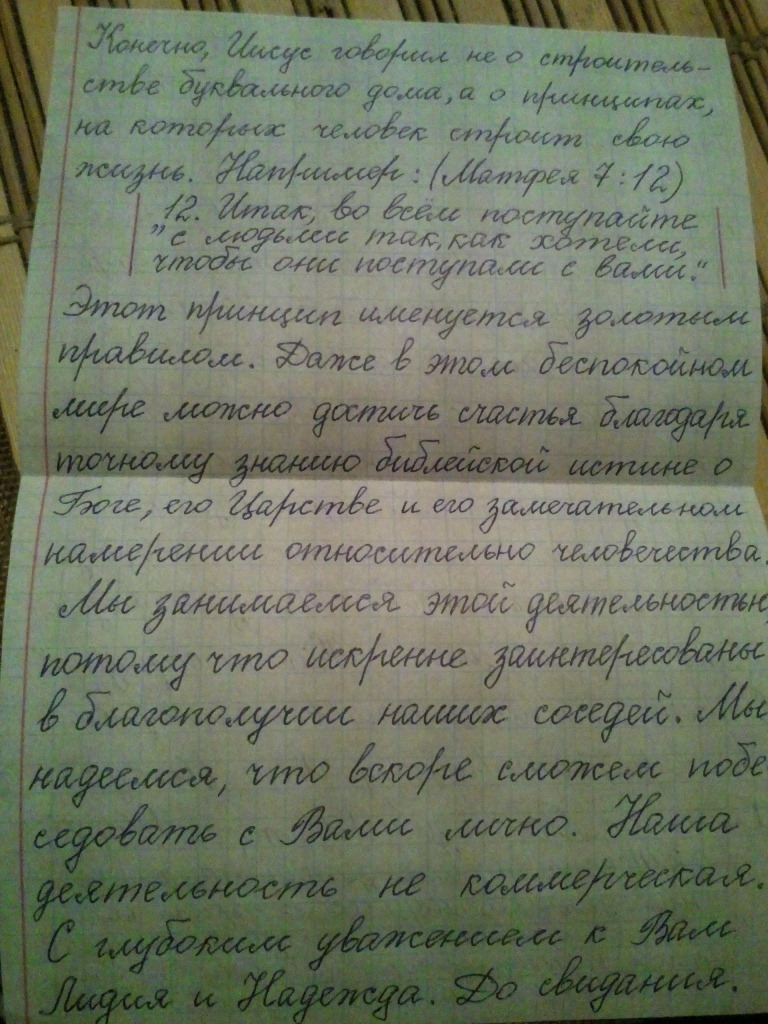 Конечно, Иисус говорил не о строитель-
стве буквального дома, а о принципах,
на которых человек строит свою
жизнь. Например: (Матфея 7:12)
12. Итак, во всём поступайте
"с людьми так, как хотели,
чтобы они поступали с вами."
Этот принцип именуется золотым
правилом. Даже в этом беспокойном
мире можно достичь счастья благодаря
точному знанию библейской истине о
Боге, его Царстве и его замечательном
намерении относительно человечества.
Мы занимаемся этой деятельностью,
потому что искренне заинтересованы
в благополучии наших соседей. Мы
надеемся, что вскоре сможем побе
седовать с Вами лично. Наша
деятельность не коммерческая.
С глубоким уважением к Вам
Лидия и Надежда. До свидания.